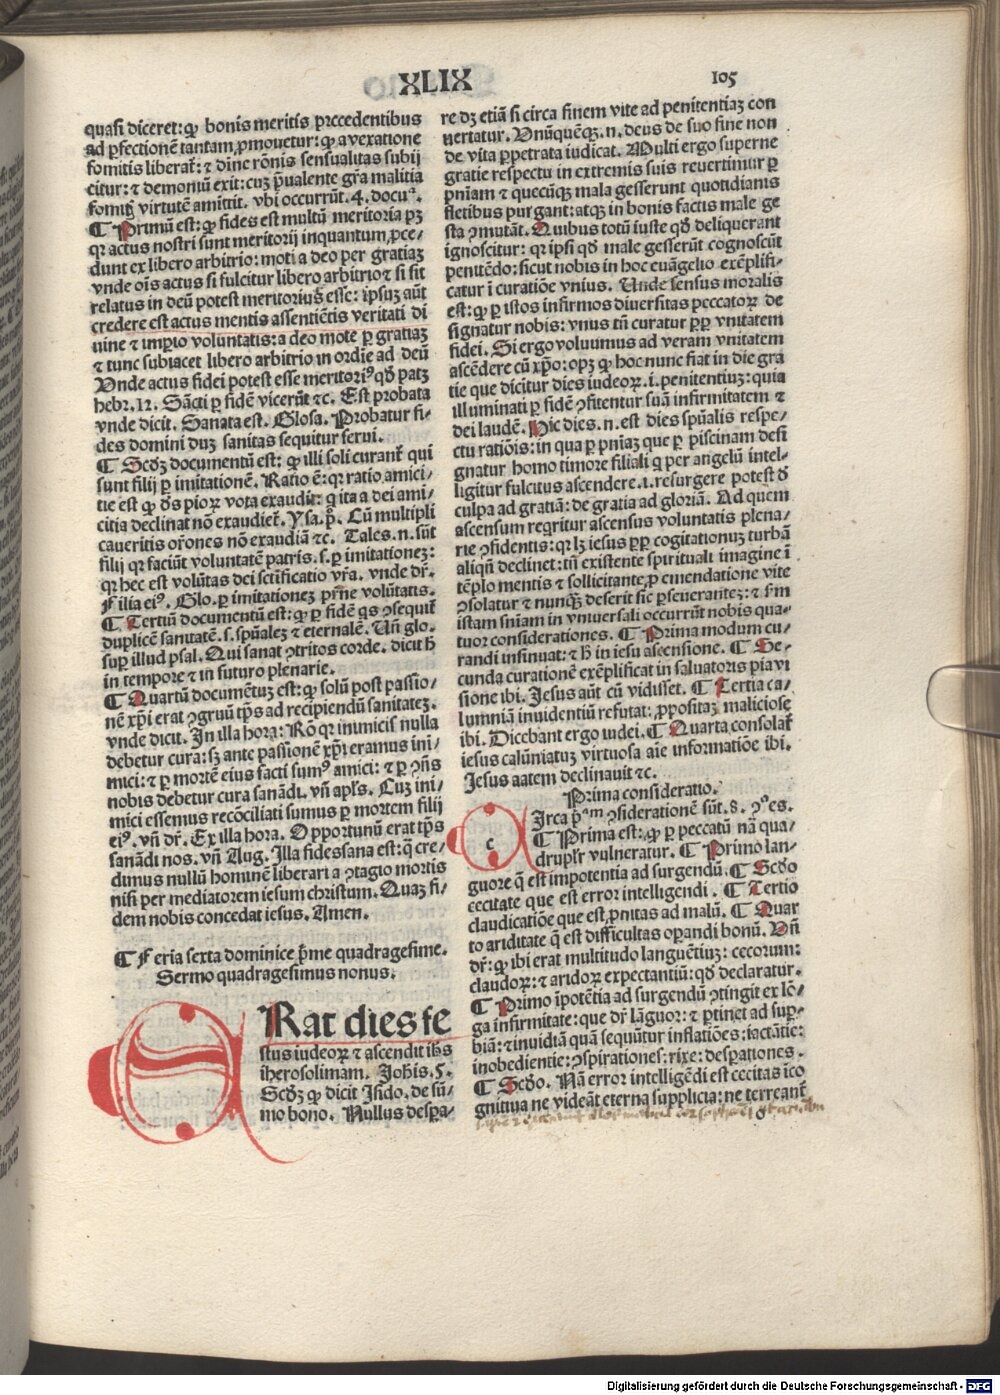 XLIX
105
quasi diceret: ꝙ bonis meritis p̄recedentibus
ad ꝑfectionē tantam ꝓmouetur: ꝙ a vexatione
fomitis liberat᷑: ⁊ dinc rōnis sensualitas subij
citur: ⁊ demoniū exit: cuꝫ p̄ualente gr̄a malitia
fomitꝭ virtutē amittit. vbi occurrūt. 4. docuᵃ.
¶ Primū est: ꝙ fides est multū meritoria pꝫ
qꝛ actus nostri sunt meritorij inquantum ꝓce-
dunt ex libero arbitrio: moti a deo per gratiaꝫ
vnde oīs actus si fulcitur libero arbitrio ⁊ si sit
relatus in deū potest meritoriꝰ esse: ipsuꝫ aūt
credere est actus mentis assentiētis veritati di
uine ⁊ imꝑio voluntatis: a deo mote ꝑ gratiaꝫ
⁊ tunc subiacet libero arbitrio in ordīe ad deū
Vnde actus fidei potest esse meritoriꝰ qd̄ patꝫ
hebr. 12. Sācti ꝑ fidē vicerūt ⁊c. Est probata
vnde dicit. Sanata est. Glosa. Probatur fi-
des domini duꝫ sanitas sequitur serui.
¶ Scd̄ꝫ documentū est: ꝙ illi soli curant᷑ qui
sunt filij ꝑ imitationē. Ratio ē: qꝛ ratio amici/
tie est ꝙ d̄s pioꝝ vota exaudit: q ita a dei ami/
citia declinat nō exaudiet᷑. Ysa. p̄. Cū multipli
caueritis or̄ones nō exaudiā ⁊c. Tales. n. sūt
filij qꝛ faciūt voluntatē patris. s. ꝑ imitationeꝫ:
qꝛ hec est volūtas dei sctificatio vr̄a. vnde dr̄.
Filia eiꝰ. Glo. ꝑ imitationeꝫ pr̄ne volūtatis.
¶ Tertiū documentū est: ꝙ ꝑ fidē qs ꝯsequit᷑
duplicē sanitatē. s. spūaleꝫ ⁊ eternalē. Un̄ glo.
suꝑ illud psal. Qui sanat ꝯtritos corde. dicit ħ
in tempore ⁊ in futuro plenarie.
¶ Quartū documētuꝫ est: ꝙ solū post passio/
nē xp̄i erat ꝯgruū tp̄s ad recipiendū sanitateꝫ.
vnde dicit. In illa hora: Rō qꝛ inimicis nulla
debetur cura: sꝫ ante passionē xp̄i eramus ini/
mici: ⁊ ꝑ mortē eius facti sumꝰ amici: ⁊ ꝑ ꝯn̄s
nobis debetur cura sanādi. vn̄ apl̄s. Cuꝫ ini/
mici essemus recōciliati sumus ꝑ mortem filij
eiꝰ. vn̄ dr̄. Ex illa hora. Opportunū erat tp̄s
sanādi nos. vn̄ Aug. Illa fides sana est: q̄ cre/
dimus nullū hominē liberari a ꝯtagio mortis
nisi per mediatorem iesum christum. Quaꝫ fi/
dem nobis concedat iesus. Amen.
¶ Feria sexta dominice p̄me quadragesime.
Sermo quadragesimus nonus.
Rat dies fe
stus iudeoꝝ ⁊ ascendit ih̄s
iherosolimam. Joh̄is. 5.
Scd̄ꝫ ꝙ dicit Isido. de sū/
mo bono. Nullus despa-
re dꝫ etiā si circa finem vite ad penitentiaꝫ con
uertatur. Vnūquēqꝫ. n. deus de suo fine non
de vita ꝑpetrata iudicat. Multi ergo superne
gratie respectu in extremis suis reuertimur ꝑ
pn̄iam ⁊ quecūqꝫ mala gesserunt quotidianis
fletibus purgant: atqꝫ in bonis factis male ge
sta ꝯmutāt. Quibus totū iuste qd̄ deliquerant
ignoscitur: qꝛ ipsi qd̄ male gesserūt cognoscūt
penitēdo: sicut nobis in hoc euāgelio exēplifi-
catur ī curatiōe vnius. Unde sensus moralis
est: ꝙ ꝑ istos infirmos diuersitas peccatoꝝ de
signatur nobis: vnus tn̄ curatur ꝓꝑ vnitatem
fidei. Si ergo voluumus ad veram vnitatem
ascēdere cū xp̄o: opꝫ ꝙ hoc nunc fiat in die gra
tie que dicitur dies iudeoꝝ. i. penitentiuꝫ: quia
illuminati ꝑ fidē ꝯfitentur suā infirmitatem ⁊
dei laudē. Hic dies. n. est dies spūalis respe-
ctu ratiōis: in qua ꝑ pn̄iaꝫ que ꝑ piscinam desi
gnatur homo timore filiali q per angelū intel-
ligitur fulcitus ascendere. i. resurgere potest d̄
culpa ad gratiā: de gratia ad gloriā. Ad quem
ascensum reqritur ascensus voluntatis plena/
rie ꝯfidentis: qꝛ lꝫ iesus ꝓꝑ cogitationuꝫ turbā
aliqn̄ declinet: tn̄ existente spirituali imagine ī
tēplo mentis ⁊ sollicitante ꝓ emendatione vite
ꝯsolatur ⁊ nunqꝫ deserit sic ꝑseuerantez: ⁊ s̄m
istam sn̄iam in vniuersali occurrūt nobis qua-
tuor considerationes. ¶ Prima modum cu/
randi insinuat: ⁊ ħ in iesu ascensione. ¶ Se/
cunda curationē exēplificat in saluatoris pia vi
sione ibi. Jesus aūt cū vidisset. ¶ Tertia ca/
lumniā inuidentiū refutat: ꝓpositaꝫ maliciose
ibi. Dicebant ergo iudei. ¶ Quarta consolat᷑
iesus calūniatuꝫ virtuosa aīe informatiōe ibi.
Jesus aatem declinauit ⁊c.
Prima consideratio.
c Jrca p̄ᵃᵐ ꝯsiderationē sūt. 8. ꝯⁿes.
¶ Prima est: ꝙ ꝑ peccatū nā qua/
druplr̄ vulneratur. ¶ Primo lan/
guore q̄ est impotentia ad surgendū. ¶ Scd̄o
cecitate que est error intelligendi. ¶ Tertio
claudicatiōe que est ꝓnitas ad malū. ¶ Quar
to ariditate q̄ est difficultas oꝑandi bonū. Vn̄
dr̄: ꝙ ibi erat multitudo languētiuꝫ: cecorum:
claudoꝝ: ⁊ aridoꝝ expectantiū: qd̄ declaratur.
¶ Primo īpotētia ad surgendū ꝯtingit ex lō/
ga infirmitate: que dr̄ lāguor: ⁊ ꝑtinet ad suꝑ/
biā: ⁊ inuidiā quā sequūtur inflatiōes: iactātie:
inobedientie: ꝯspirationes: rixe: despationes.
¶ Scd̄o. Nā error intelligēdi est cecitas īco
gnitiua ne videāt eterna supplicia: ne terreant᷑